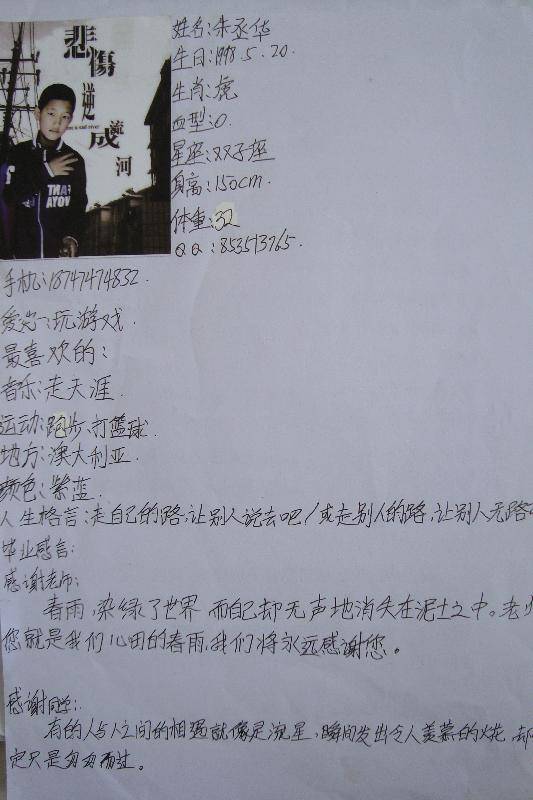 悲傷
逆
流
成
河
姓名:朱丞华
生日:1998.5.20.
生肖:虎
血型:O.
星座:双子座
身高:150cm.
体重:32
QQ:853513765.
手机:18747474832.
爱好:玩游戏.
最喜欢的:
音乐:走天涯.
运动:跑步、打篮球.
地方:澳大利亚.
颜色:紫蓝.
人生格言:走自己的路,让别人说去吧/或走别人的路,让别人无路
毕业感言:
感谢老师:
春雨,染绿了世界 而自己却无声地消失在泥土之中。老
您就是我们心田的春雨,我们将永远感谢您。
感谢同学:
有的人与人之间的相遇就像是流星,瞬间发出令人羡慕的火花,却
定只是匆匆而过。